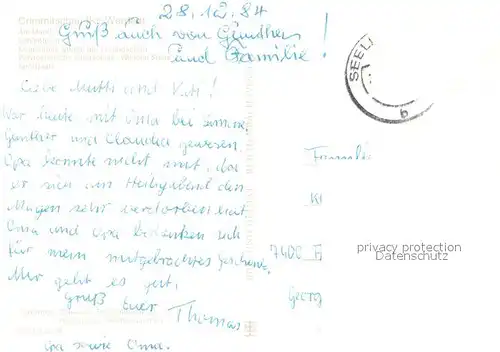 28.12.84
Gruß auch von Günther
und Familie!
Liebe Mutti und Vati!
War heute mit Oma bei Simone,
Günther und Claudia gewesen.
Opa konnte nicht mit, da
er sich am Heiligabend den
Magen sehr verdorben hat.
Oma und Opa bedanken sich
für mein mitgebrachtes Geschenk.
Mir geht es gut.
Gruß Euer Thomas
Opa sowie Oma.
SEEL
b
Familie
7400
Georg
privacy protection
Datenschutz